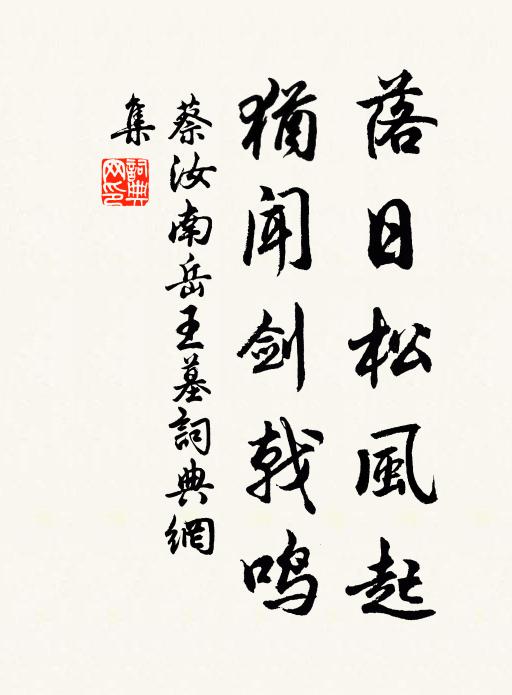 落日松風起
猶闻剑戟鸣
蔡汝南岳王墓詞典網
集
詞典
网印